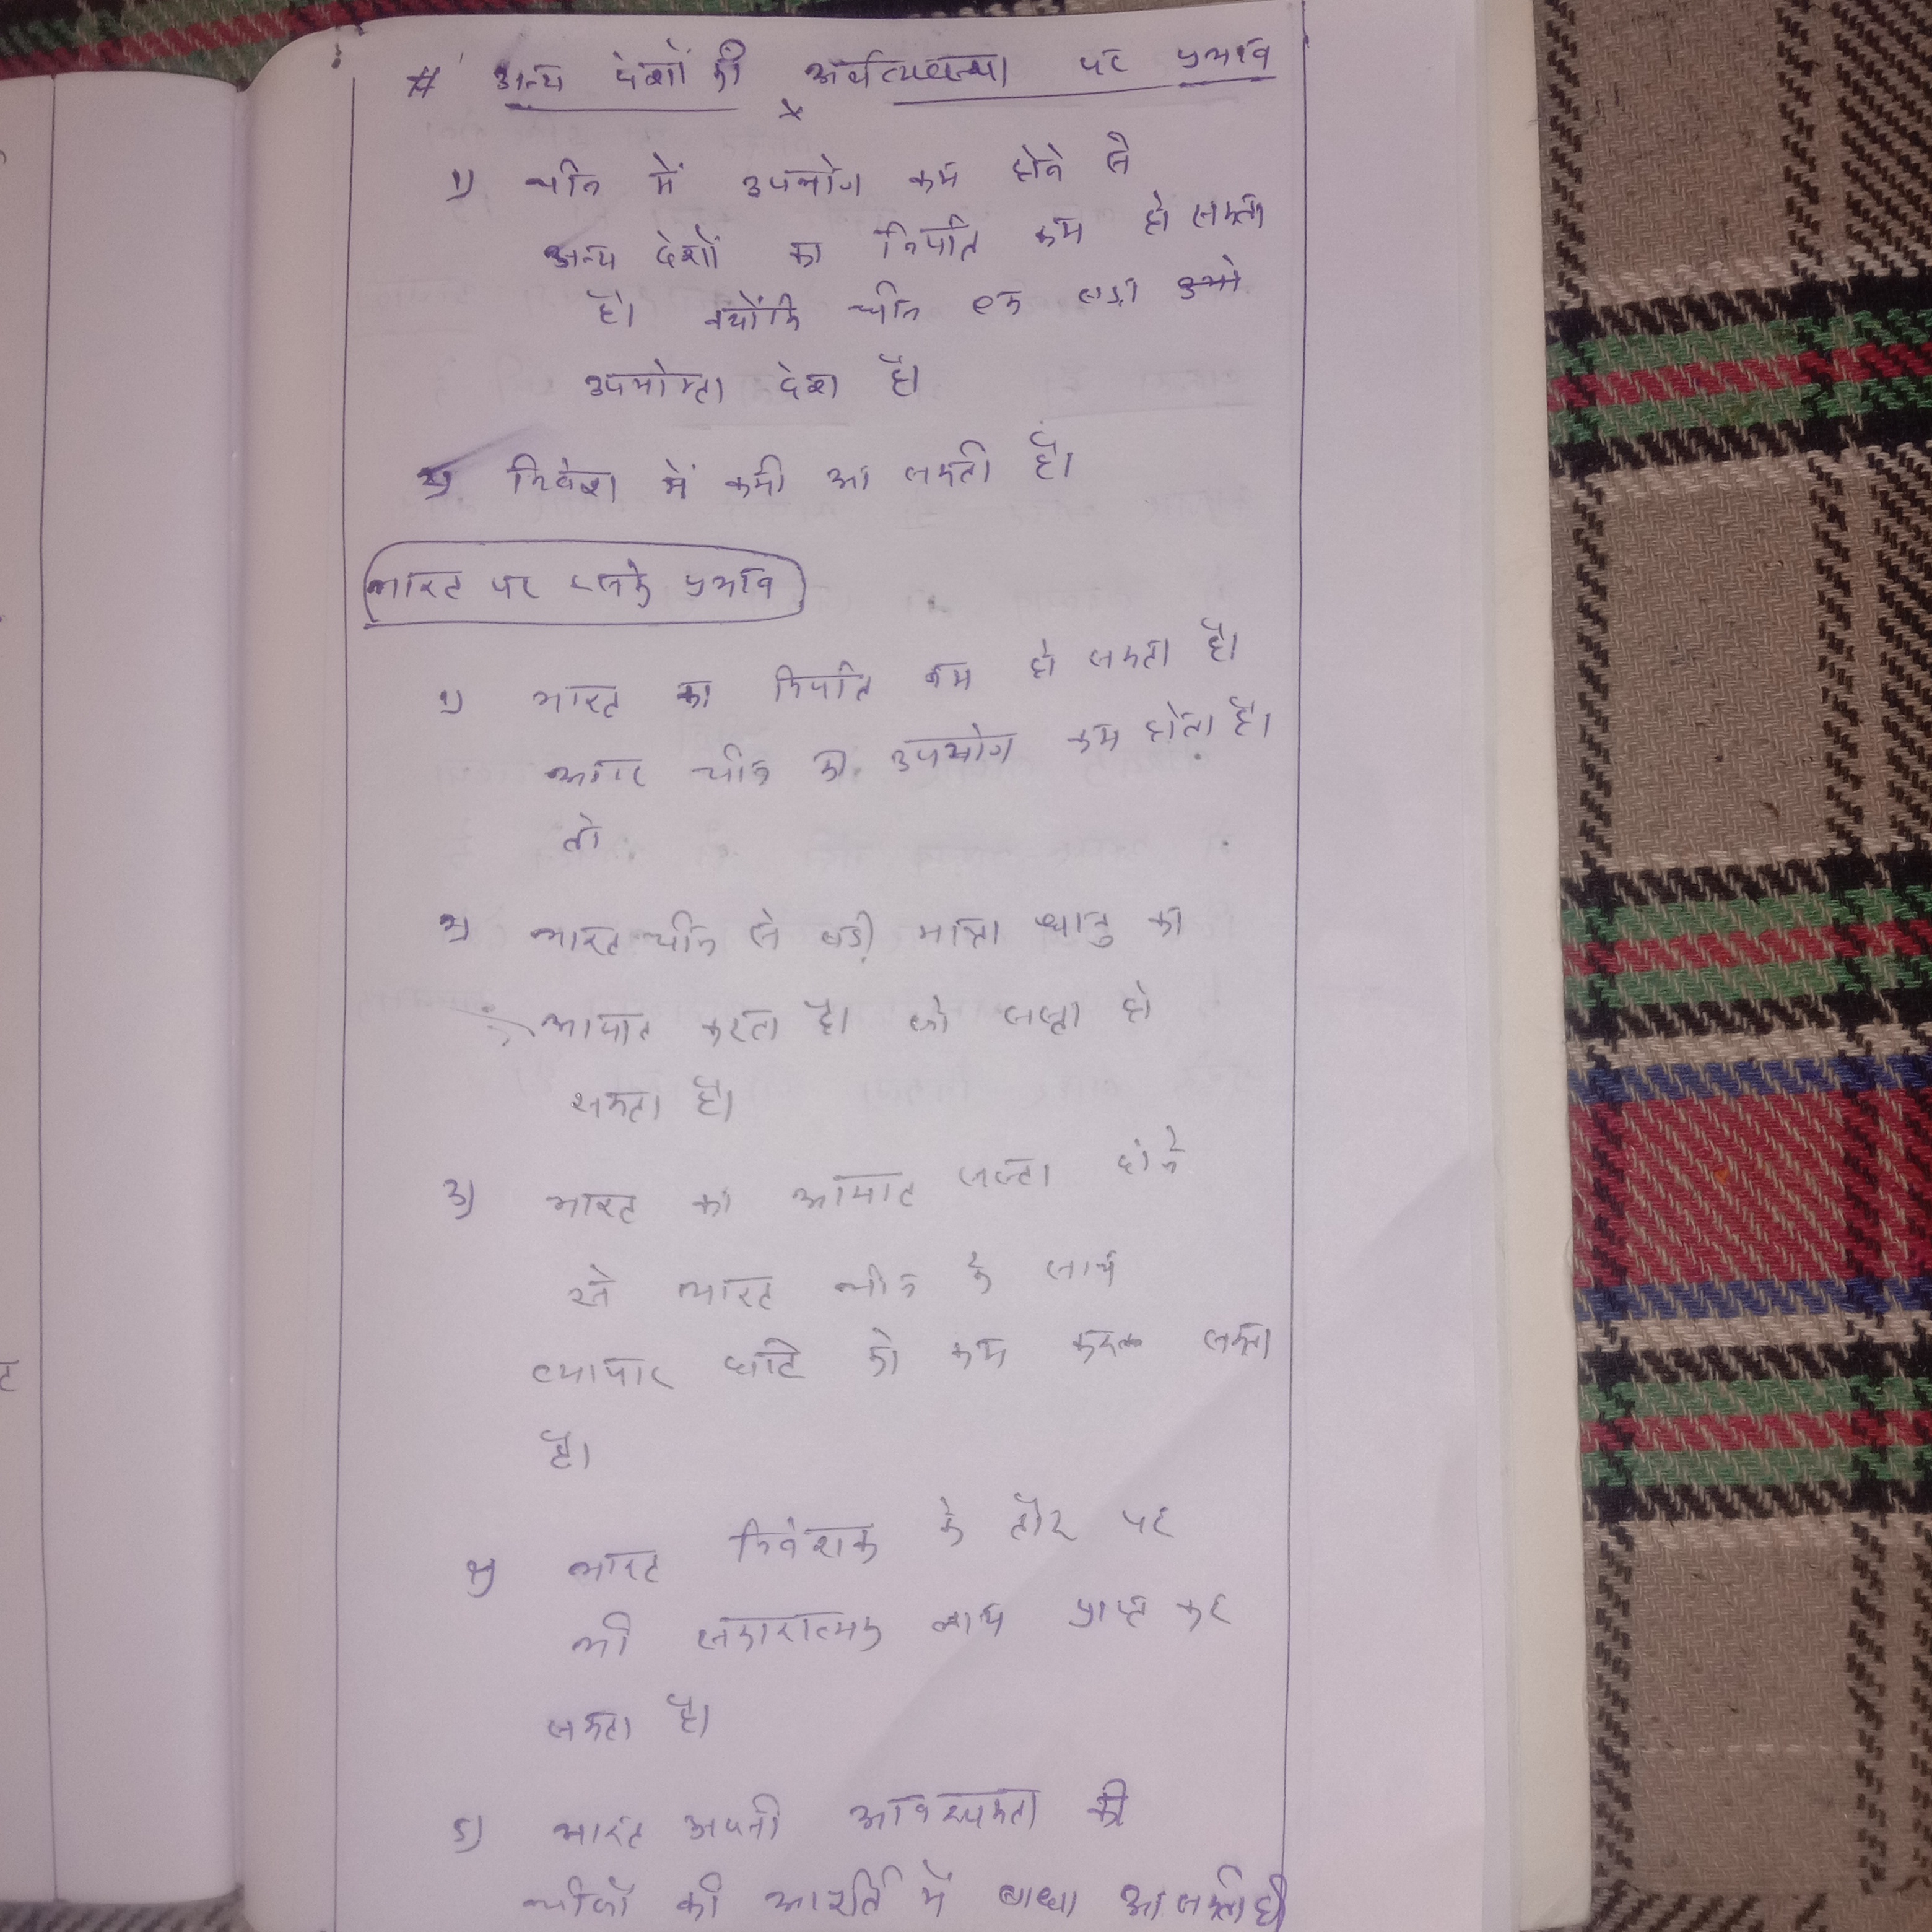 # अन्य देशों की अर्थव्यवस्था पर प्रभाव
1) चीन में उपभोग कम होने से
अन्य देशों का निर्यात कम हो सकता
है। क्योंकि चीन एक बड़ा
उपभोक्ता देश है।
2) निवेश में कमी आ सकती है।
भारत पर इसके प्रभाव
1) भारत का निर्यात कम हो सकता है।
अगर चीन का उपभोग कम होता है।
तो
2) भारत चीन से बड़ी मात्रा धातु का
आयात करता है। जो सस्ता हो
सकता है।
3) भारत का आयात सस्ता होने
से भारत चीन के साथ
व्यापार घाटे को कम कर सकता
है।
4) भारत निवेशक के तौर पर
भी सकारात्मक लाभ प्राप्त कर
सकता है।
5) भारत अपनी आवश्यकता की
चीजों की आपूर्ति में बाधा आ सकती है